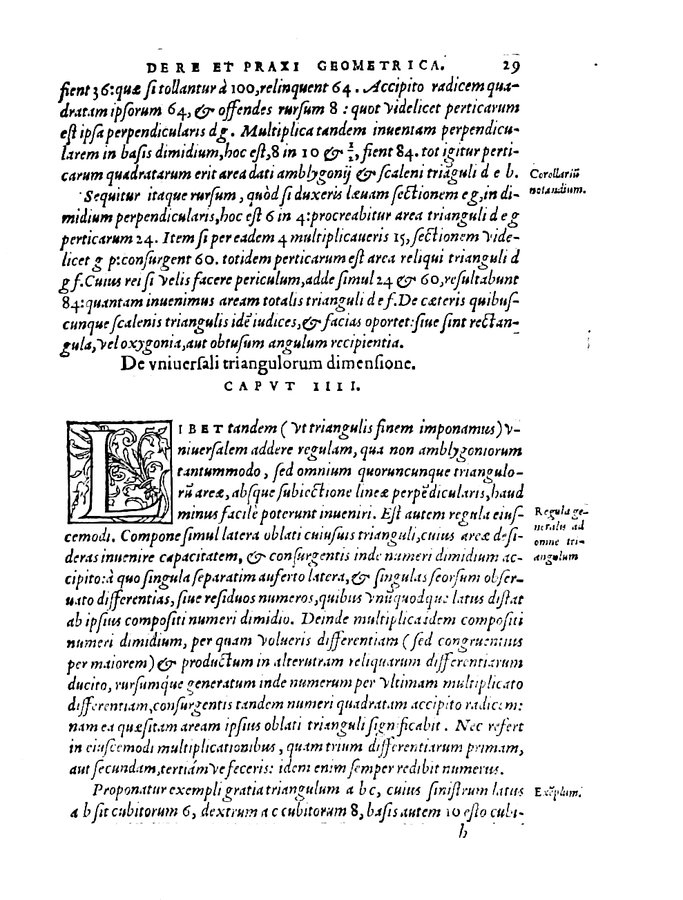 DE RE ET PRAXI GEOMETRICA. 29
fient 36: quæ si tollantur à 100, relinquent 64. Accipito radicem qua-
dratam ipsorum 64, & offendes rursum 8 : quot videlicet perticarum
est ipsa perpendicularis d g. Multiplica tandem inuentam perpendicu-
larem in basis dimidium, hoc est, 8 in 10 & 1/2, fient 84. tot igitur perti-
carum quadratarum erit area dati amblygonij & scaleni triāguli d e b.
Corollariū
notandium.
Sequitur itaque rursum, quòd si duxeris læuam sectionem e g, in di-
midium perpendicularis, hoc est 6 in 4: procreabitur area trianguli d e g
perticarum 24. Item si per eadem 4 multiplicaueris 15, sectionem vide-
licet g p: consurgent 60. totidem perticarum est area reliqui trianguli d
g f. Cuius rei si velis facere periculum, adde simul 24 & 60, resultabunt
84: quantam inuenimus aream totalis trianguli d e f. De cæteris quibus-
cunque scalenis triangulis idē iudices, & facias oportet: siue sint rectan-
gula, vel oxygonia, aut obtusum angulum recipientia.
De vniuersali triangulorum dimensione.
CAPVT IIII.
LIBET tandem ( vt triangulis finem imponamus) v-
niuersalem addere regulam, qua non amblygoniorum
tantummodo, sed omnium quoruncunque triangulo-
rū areæ, absque subiectione lineæ perpēdicularis, haud
minus facilè poterunt inueniri. Est autem regula eius-
Regula ge-
neralis ad
omne tri-
angulum
cemodi. Compone simul latera oblati cuiusuis trianguli, cuius areæ desi-
deras inuenire capacitatem, & consurgentis inde numeri dimidium ac-
cipito: à quo singula separatim auferto latera, & singulas seorsum obser-
uato differentias, siue residuos numeros, quibus vnūquodque latus distat
ab ipsius compositi numeri dimidio. Deinde multiplica idem compositi
numeri dimidium, per quam volueris differentiam ( sed congruentius
per maiorem) & productum in alterutram reliquarum differentiarum
ducito, rursumq́ue generatum inde numerum per vltimam multiplicato
differentiam, consurgentis tandem numeri quadratam accipito radicem:
nam ea quæsitam aream ipsius oblati trianguli significabit . Nec refert
in eiuscemodi multiplicationibus, quam trium differentiarum primam,
aut secundam, tertiámve feceris: idem enim semper redibit numerus.
Proponatur exempli gratia triangulum a b c, cuius sinistrum latus
Exēplum.
a b sit cubitorum 6, dextrum a c cubitorum 8, basis autem 10 esto cubi-
h